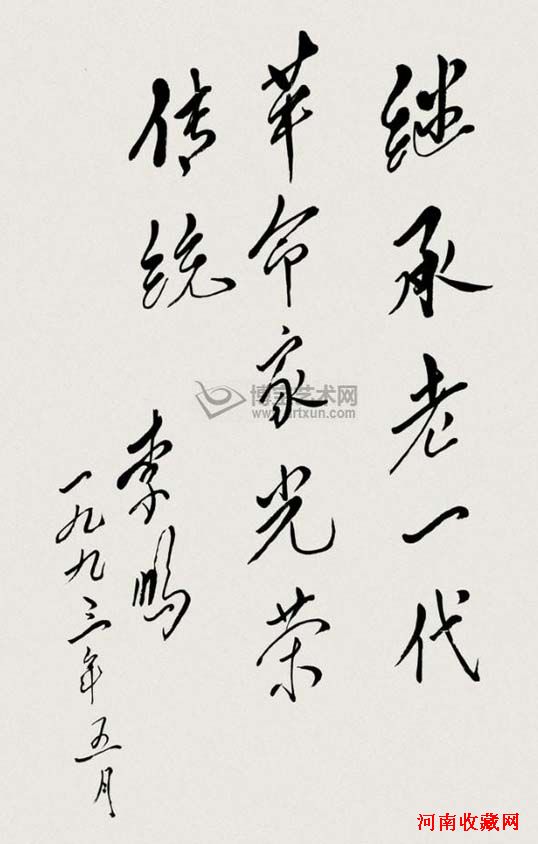 继承老一代
革命家光荣
传统
李鹏
一九九三年五月
博宝艺术网
www.artxun.com
河南收藏网